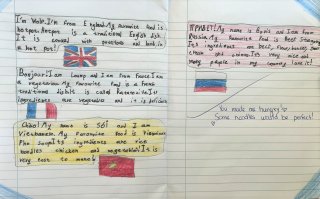 I'm Walt.I'm from England.My favourite food is
hotpot.Hotpot is a traditional English dish.
It is covered with potatoes and cooked in
a hot pot!
Bonjour!I am Lenny and I am from France.I am
a vegetarian.My favourite food is a french
traditional dish.It is called Ratatouille.Its
ingredients are vegetables and it is delicious
Chào!My name is and I am
Vietnamese.My favourite food is Vietnamese
Pho soup.Its ingredients are rice
noodles chicken and vegetables!It is
very easy to make!
ПРИВЕТ!My name is and I am from
Russia.My favourite food is Beef Stroganoff
Its ingredients are beef, flour, onions, sour
cream and onions.It's very nice and
many people in my country love it!
You made me hungry!
Some noodles would be perfect!